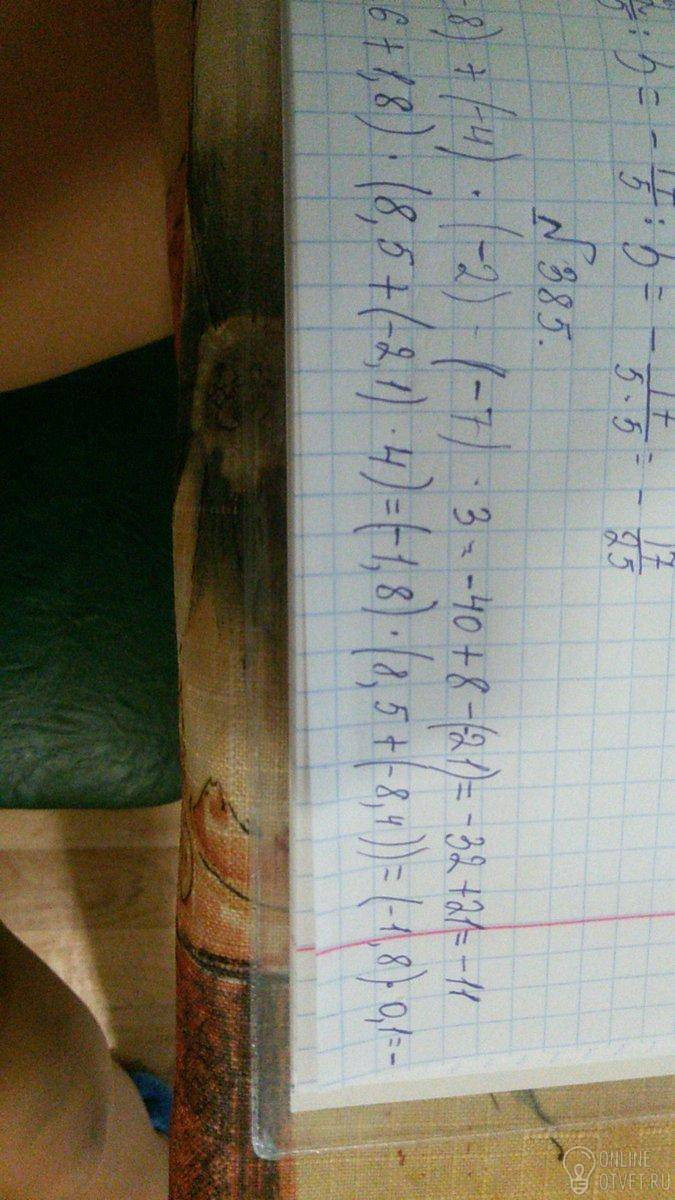 : b = - 17/5 : b = - 17/(5 · 5) = - 17/25
№ 385.
-8) + (-4) · (-2) - (-7) · 3 = -40 + 8 - (-21) = -32 + 21 = -11
6 + 1,8) · (8,5 + (-2,1) · 4) = (-1,8) · (8,5 + (-8,4)) = (-1,8) · 0,1 = -
ONLINE
OTVET.RU